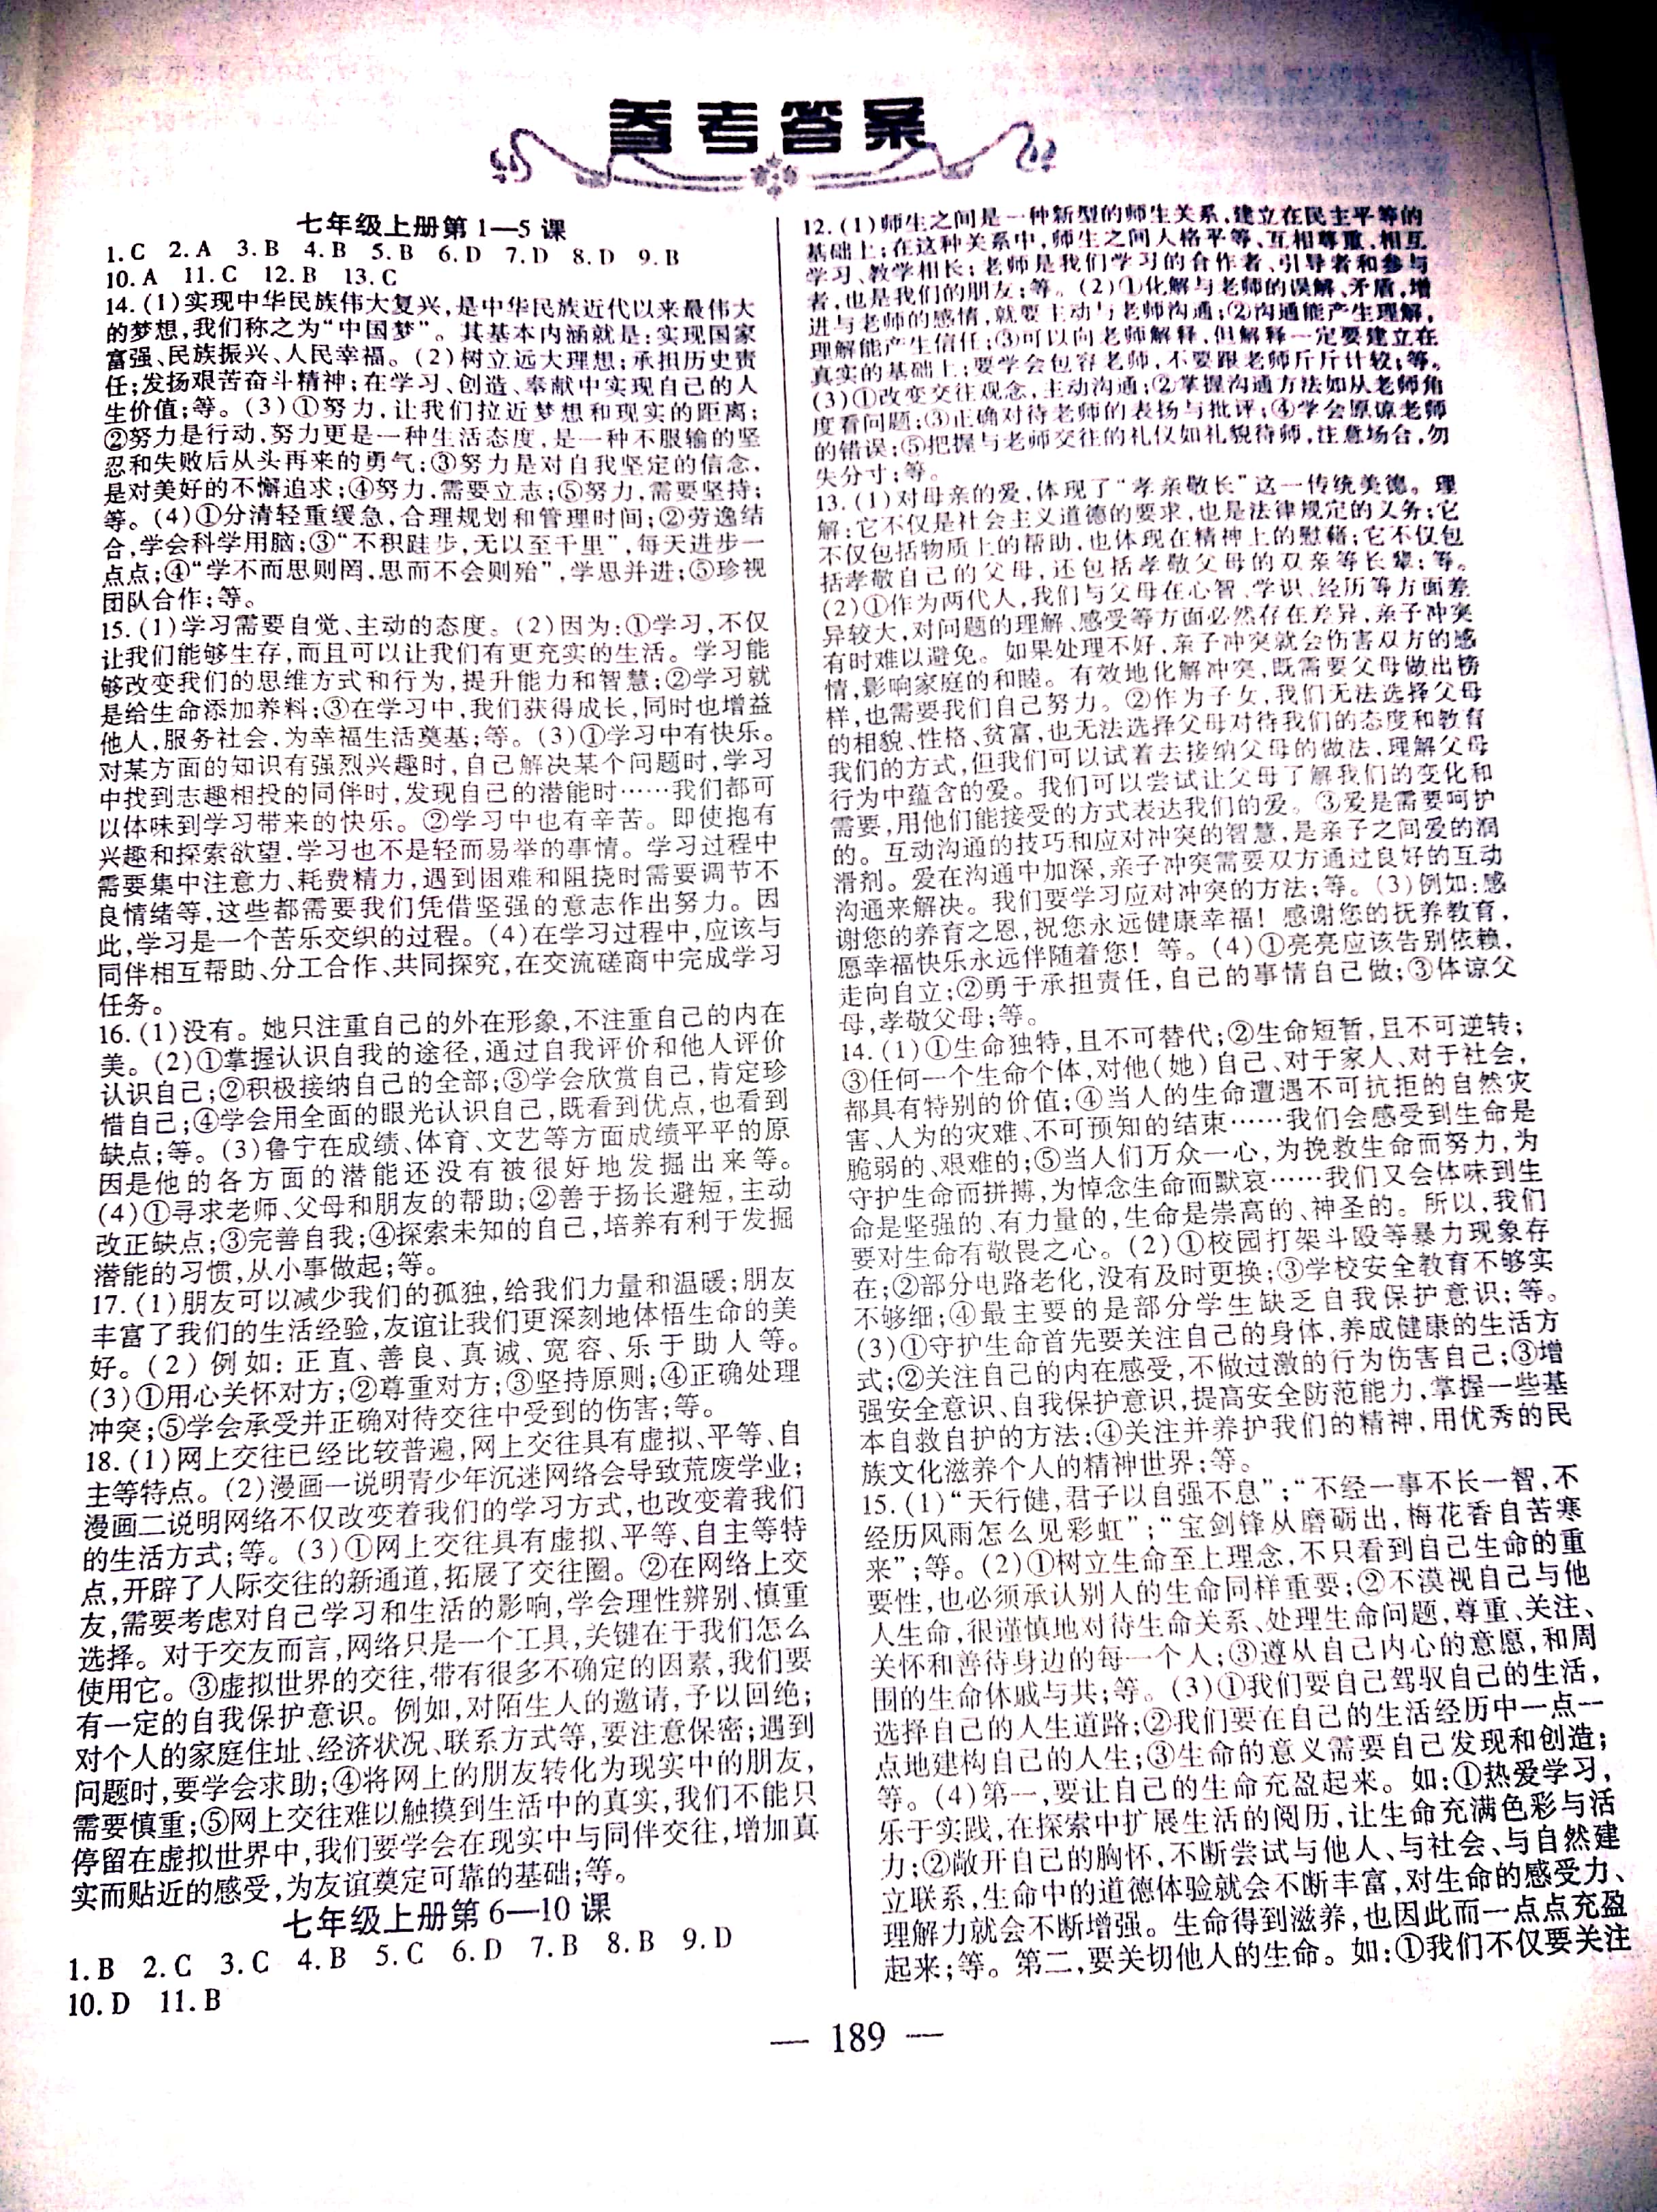 参考答案
七年级上册第1—5课
1.C 2.A 3.B 4.B 5.B 6.D 7.D 8.D 9.B
10.A 11.C 12.B 13.C
14.(1)实现中华民族伟大复兴,是中华民族近代以来最伟大
的梦想,我们称之为“中国梦”。其基本内涵就是:实现国家
富强、民族振兴、人民幸福。(2)树立远大理想;承担历史责
任;发扬艰苦奋斗精神;在学习、创造、奉献中实现自己的人
生价值;等。(3)①努力,让我们拉近梦想和现实的距离;
②努力是行动,努力更是一种生活态度,是一种不服输的坚
忍和失败后从头再来的勇气;③努力是对自我坚定的信念,
是对美好的不懈追求;④努力,需要立志;⑤努力,需要坚持;
等。(4)①分清轻重缓急,合理规划和管理时间;②劳逸结
合,学会科学用脑;③“不积跬步,无以至千里”,每天进步一
点点;④“学不而思则罔,思而不会则殆”,学思并进;⑤珍视
团队合作;等。
15.(1)学习需要自觉、主动的态度。(2)因为:①学习,不仅
让我们能够生存,而且可以让我们有更充实的生活。学习能
够改变我们的思维方式和行为,提升能力和智慧;②学习就
是给生命添加养料;③在学习中,我们获得成长,同时也增益
他人,服务社会,为幸福生活奠基;等。(3)①学习中有快乐。
对某方面的知识有强烈兴趣时,自己解决某个问题时,学习
中找到志趣相投的同伴时,发现自己的潜能时……我们都可
以体味到学习带来的快乐。②学习中也有辛苦。即使抱有
兴趣和探索欲望,学习也不是轻而易举的事情。学习过程中
需要集中注意力、耗费精力,遇到困难和阻挠时需要调节不
良情绪等,这些都需要我们凭借坚强的意志作出努力。因
此,学习是一个苦乐交织的过程。(4)在学习过程中,应该与
同伴相互帮助、分工合作、共同探究,在交流磋商中完成学习
任务。
16.(1)没有。她只注重自己的外在形象,不注重自己的内在
美。(2)①掌握认识自我的途径,通过自我评价和他人评价
认识自己;②积极接纳自己的全部;③学会欣赏自己,肯定珍
惜自己;④学会用全面的眼光认识自己,既看到优点,也看到
缺点;等。(3)鲁宁在成绩、体育、文艺等方面成绩平平的原
因是他的各方面的潜能还没有被很好地发掘出来等。
(4)①寻求老师、父母和朋友的帮助;②善于扬长避短,主动
改正缺点;③完善自我;④探索未知的自己,培养有利于发掘
潜能的习惯,从小事做起;等。
17.(1)朋友可以减少我们的孤独,给我们力量和温暖;朋友
丰富了我们的生活经验,友谊让我们更深刻地体悟生命的美
好。(2)例如:正直、善良、真诚、宽容、乐于助人等。
(3)①用心关怀对方;②尊重对方;③坚持原则;④正确处理
冲突;⑤学会承受并正确对待交往中受到的伤害;等。
18.(1)网上交往已经比较普遍,网上交往具有虚拟、平等、自
主等特点。(2)漫画一说明青少年沉迷网络会导致荒废学业;
漫画二说明网络不仅改变着我们的学习方式,也改变着我们
的生活方式;等。(3)①网上交往具有虚拟、平等、自主等特
点,开辟了人际交往的新通道,拓展了交往圈。②在网络上交
友,需要考虑对自己学习和生活的影响,学会理性辨别、慎重
选择。对于交友而言,网络只是一个工具,关键在于我们怎么
使用它。③虚拟世界的交往,带有很多不确定的因素,我们要
有一定的自我保护意识。例如,对陌生人的邀请,予以回绝;
对个人的家庭住址、经济状况、联系方式等,要注意保密;遇到
问题时,要学会求助;④将网上的朋友转化为现实中的朋友,
需要慎重;⑤网上交往难以触摸到生活中的真实,我们不能只
停留在虚拟世界中,我们要学会在现实中与同伴交往,增加真
实而贴近的感受,为友谊奠定可靠的基础;等。
七年级上册第6—10课
1.B 2.C 3.C 4.B 5.C 6.D 7.B 8.B 9.D
10.D 11.B
12.(1)师生之间是一种新型的师生关系,建立在民主平等的
基础上;在这种关系中,师生之间人格平等、互相尊重、相互
学习、教学相长;老师是我们学习的合作者、引导者和参与
者,也是我们的朋友;等。(2)①化解与老师的误解、矛盾,增
进与老师的感情,就要主动与老师沟通;②沟通能产生理解,
理解能产生信任;③可以向老师解释,但解释一定要建立在
真实的基础上;要学会包容老师,不要跟老师斤斤计较;等。
(3)①改变交往观念,主动沟通;②掌握沟通方法如从老师角
度看问题;③正确对待老师的表扬与批评;④学会原谅老师
的错误;⑤把握与老师交往的礼仪如礼貌待师,注意场合,勿
失分寸;等。
13.(1)对母亲的爱,体现了“孝亲敬长”这一传统美德。理
解:它不仅是社会主义道德的要求,也是法律规定的义务;它
不仅包括物质上的帮助,也体现在精神上的慰藉;它不仅包
括孝敬自己的父母,还包括孝敬父母的双亲等长辈;等。
(2)①作为两代人,我们与父母在心智、学识、经历等方面差
异较大,对问题的理解、感受等方面必然存在差异,亲子冲突
有时难以避免。如果处理不好,亲子冲突就会伤害双方的感
情,影响家庭的和睦。有效地化解冲突,既需要父母做出榜
样,也需要我们自己努力。②作为子女,我们无法选择父母
的相貌、性格、贫富,也无法选择父母对待我们的态度和教育
我们的方式,但我们可以试着去接纳父母的做法,理解父母
行为中蕴含的爱。我们可以尝试让父母了解我们的变化和
需要,用他们能接受的方式表达我们的爱。③爱是需要呵护
的。互动沟通的技巧和应对冲突的智慧,是亲子之间爱的润
滑剂。爱在沟通中加深,亲子冲突需要双方通过良好的互动
沟通来解决。我们要学习应对冲突的方法;等。(3)例如:感
谢您的养育之恩,祝您永远健康幸福!感谢您的抚养教育,
愿幸福快乐永远伴随着您!等。(4)①亮亮应该告别依赖,
走向自立;②勇于承担责任,自己的事情自己做;③体谅父
母,孝敬父母;等。
14.(1)①生命独特,且不可替代;②生命短暂,且不可逆转;
③任何一个生命个体,对他(她)自己、对于家人、对于社会,
都具有特别的价值;④当人的生命遭遇不可抗拒的自然灾
害、人为的灾难、不可预知的结束……我们会感受到生命是
脆弱的、艰难的;⑤当人们万众一心,为挽救生命而努力,为
守护生命而拼搏,为悼念生命而默哀……我们又会体味到生
命是坚强的、有力量的,生命是崇高的、神圣的。所以,我们
要对生命有敬畏之心。(2)①校园打架斗殴等暴力现象存
在;②部分电路老化,没有及时更换;③学校安全教育不够实
不够细;④最主要的是部分学生缺乏自我保护意识;等。
(3)①守护生命首先要关注自己的身体,养成健康的生活方
式;②关注自己的内在感受,不做过激的行为伤害自己;③增
强安全意识、自我保护意识,提高安全防范能力,掌握一些基
本自救自护的方法;④关注并养护我们的精神,用优秀的民
族文化滋养个人的精神世界;等。
15.(1)“天行健,君子以自强不息”;“不经一事不长一智,不
经历风雨怎么见彩虹”;“宝剑锋从磨砺出,梅花香自苦寒
来”;等。(2)①树立生命至上理念,不只看到自己生命的重
要性,也必须承认别人的生命同样重要;②不漠视自己与他
人生命,很谨慎地对待生命关系、处理生命问题,尊重、关注、
关怀和善待身边的每一个人;③遵从自己内心的意愿,和周
围的生命休戚与共;等。(3)①我们要自己驾驭自己的生活,
选择自己的人生道路;②我们要在自己的生活经历中一点一
点地建构自己的人生;③生命的意义需要自己发现和创造;
等。(4)第一,要让自己的生命充盈起来。如:①热爱学习,
乐于实践,在探索中扩展生活的阅历,让生命充满色彩与活
力;②敞开自己的胸怀,不断尝试与他人、与社会、与自然建
立联系,生命中的道德体验就会不断丰富,对生命的感受力、
理解力就会不断增强。生命得到滋养,也因此而一点点充盈
起来;等。第二,要关切他人的生命。如:①我们不仅要关注
— 189 —